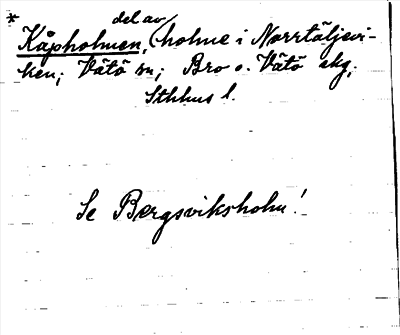 * del av
Kåpholmen, (holme i Norrtäljevi-
ken; Vätö sn; Bro o. Vätö skg;
Sthlms l.
Se Bergsviksholm!